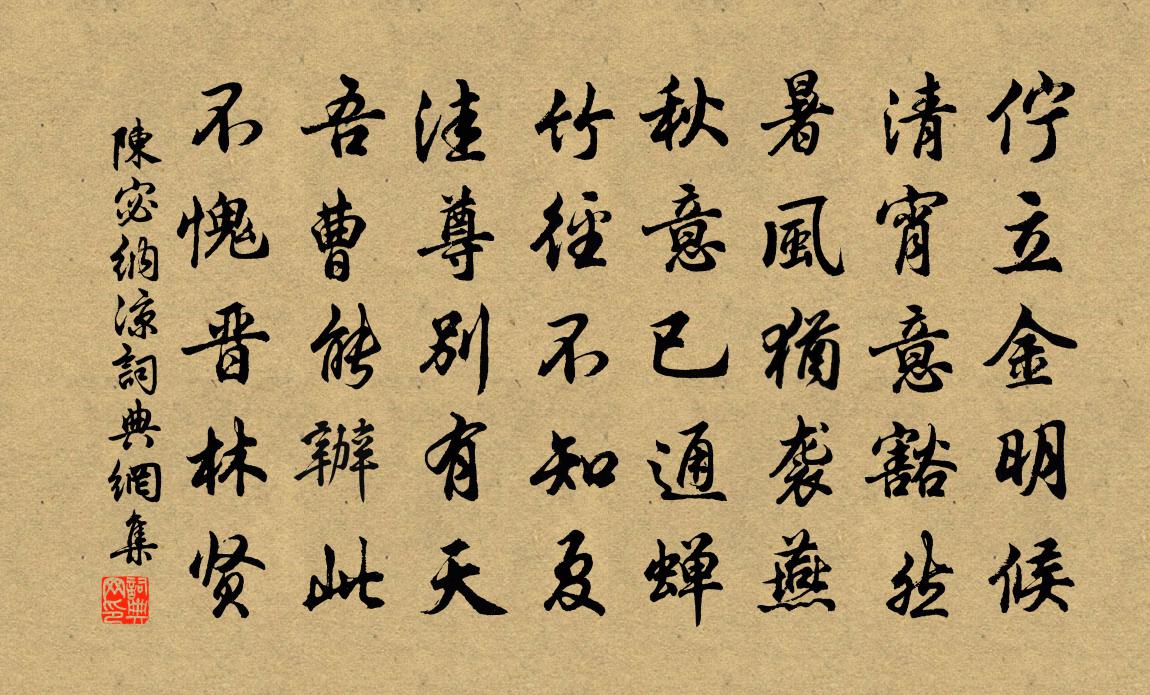 佇立金明候
清宵意豁然
暑風猶袭燕
秋意已通蝉
竹徑不知夏
洼尊別有天
吾曹能辦此
不愧晋林贤
陳宓纳凉詞典網集
詞典網印